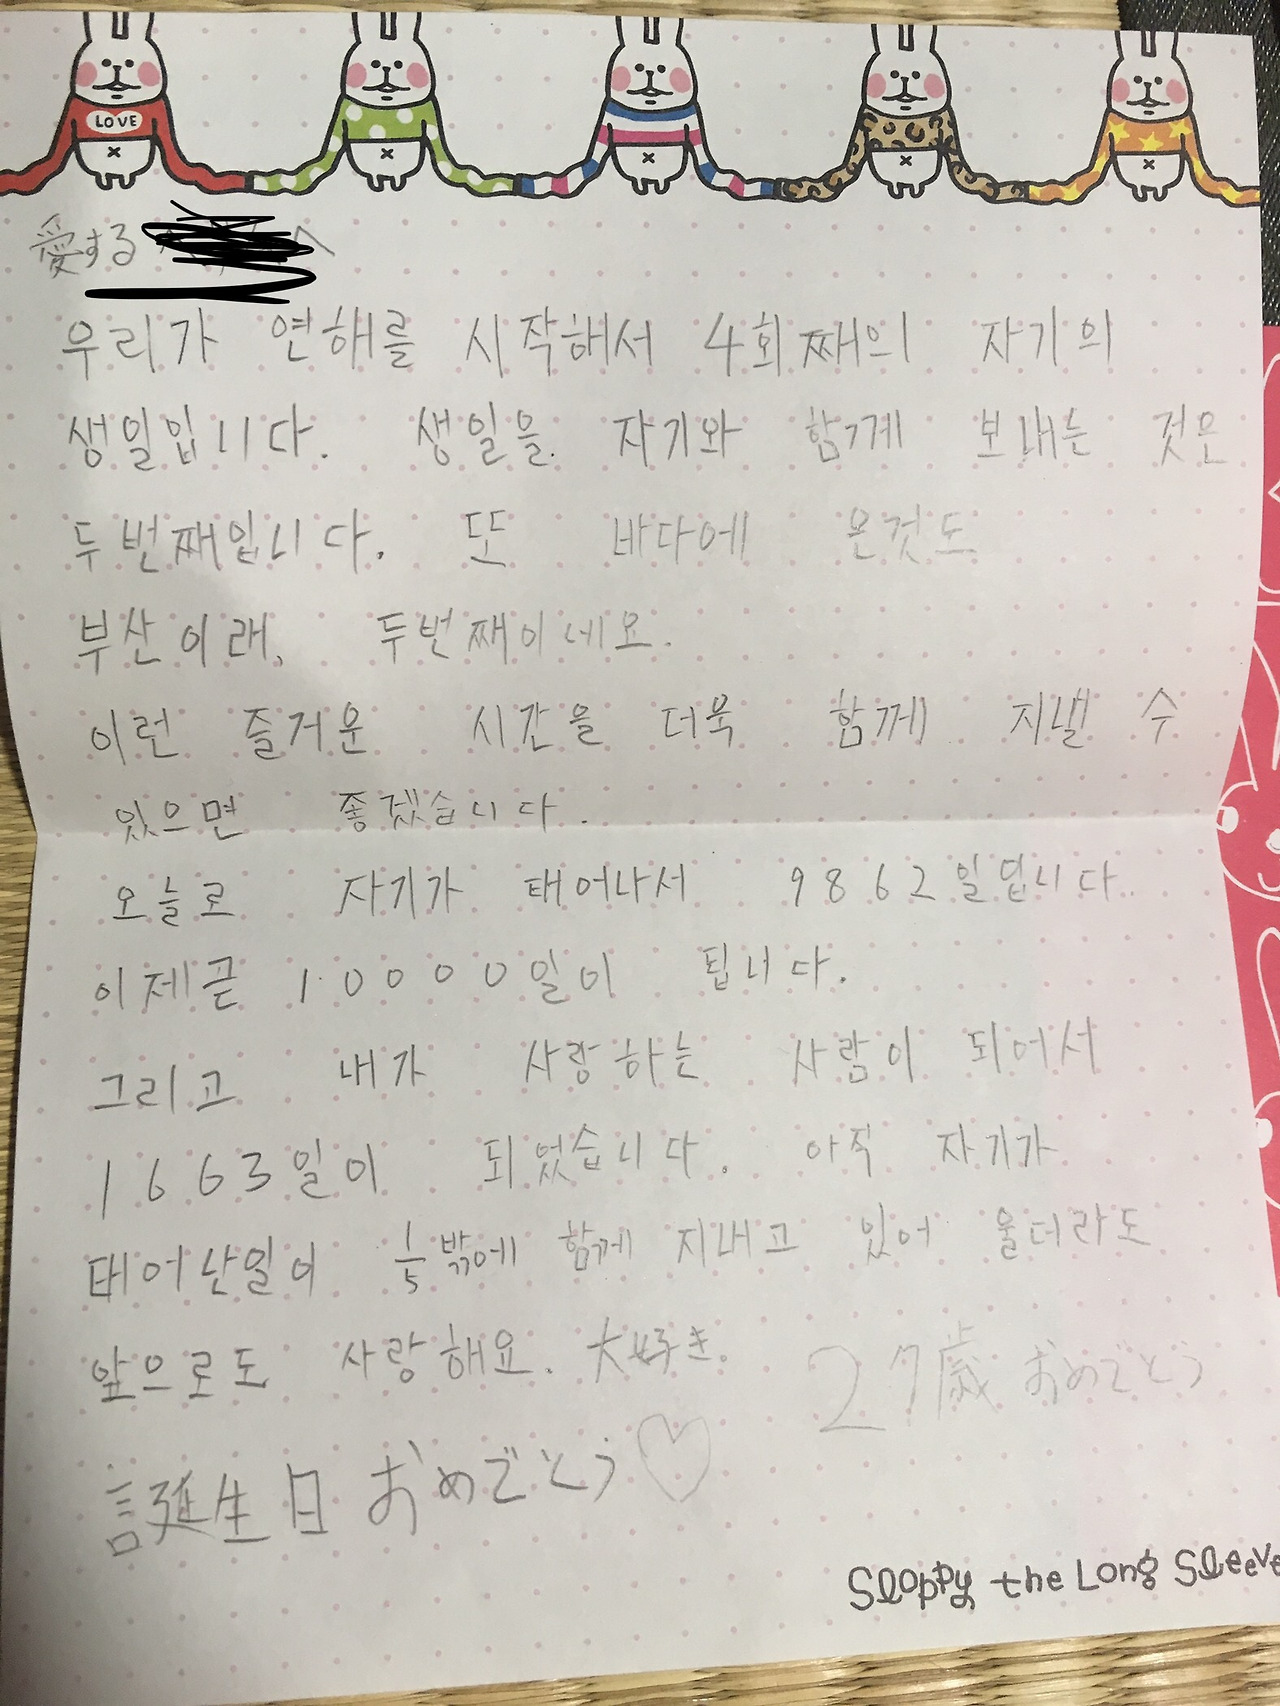 LOVE
愛する へ
우리가 연해를 시작해서 4회째의 자기의
생일입니다. 생일을 자기와 함께 보내는 것은
두번째입니다. 또 바다에 온것도
부산이래, 두번째이네요.
이런 즐거운 시간을 더욱 함께 지낼 수
있으면 좋겠습니다.
오늘로 자기가 태어나서 9862일됩니다.
이제곧 10000일이 됩니다.
그리고 내가 사랑하는 사람이 되어서
1663일이 되었습니다. 아직 자기가
태어난일이 1/5밖에 함께 지내고 있어 울더라도
앞으로도 사랑해요. 大好き. 27歳おめでとう
誕生日おめでとう♡
Sloppy the Long Sleeve